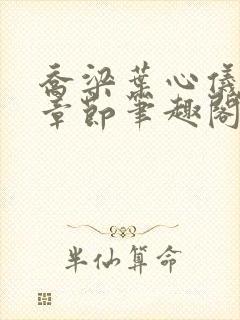 乔梁叶心仪
章节笔趣阁
半仙算命